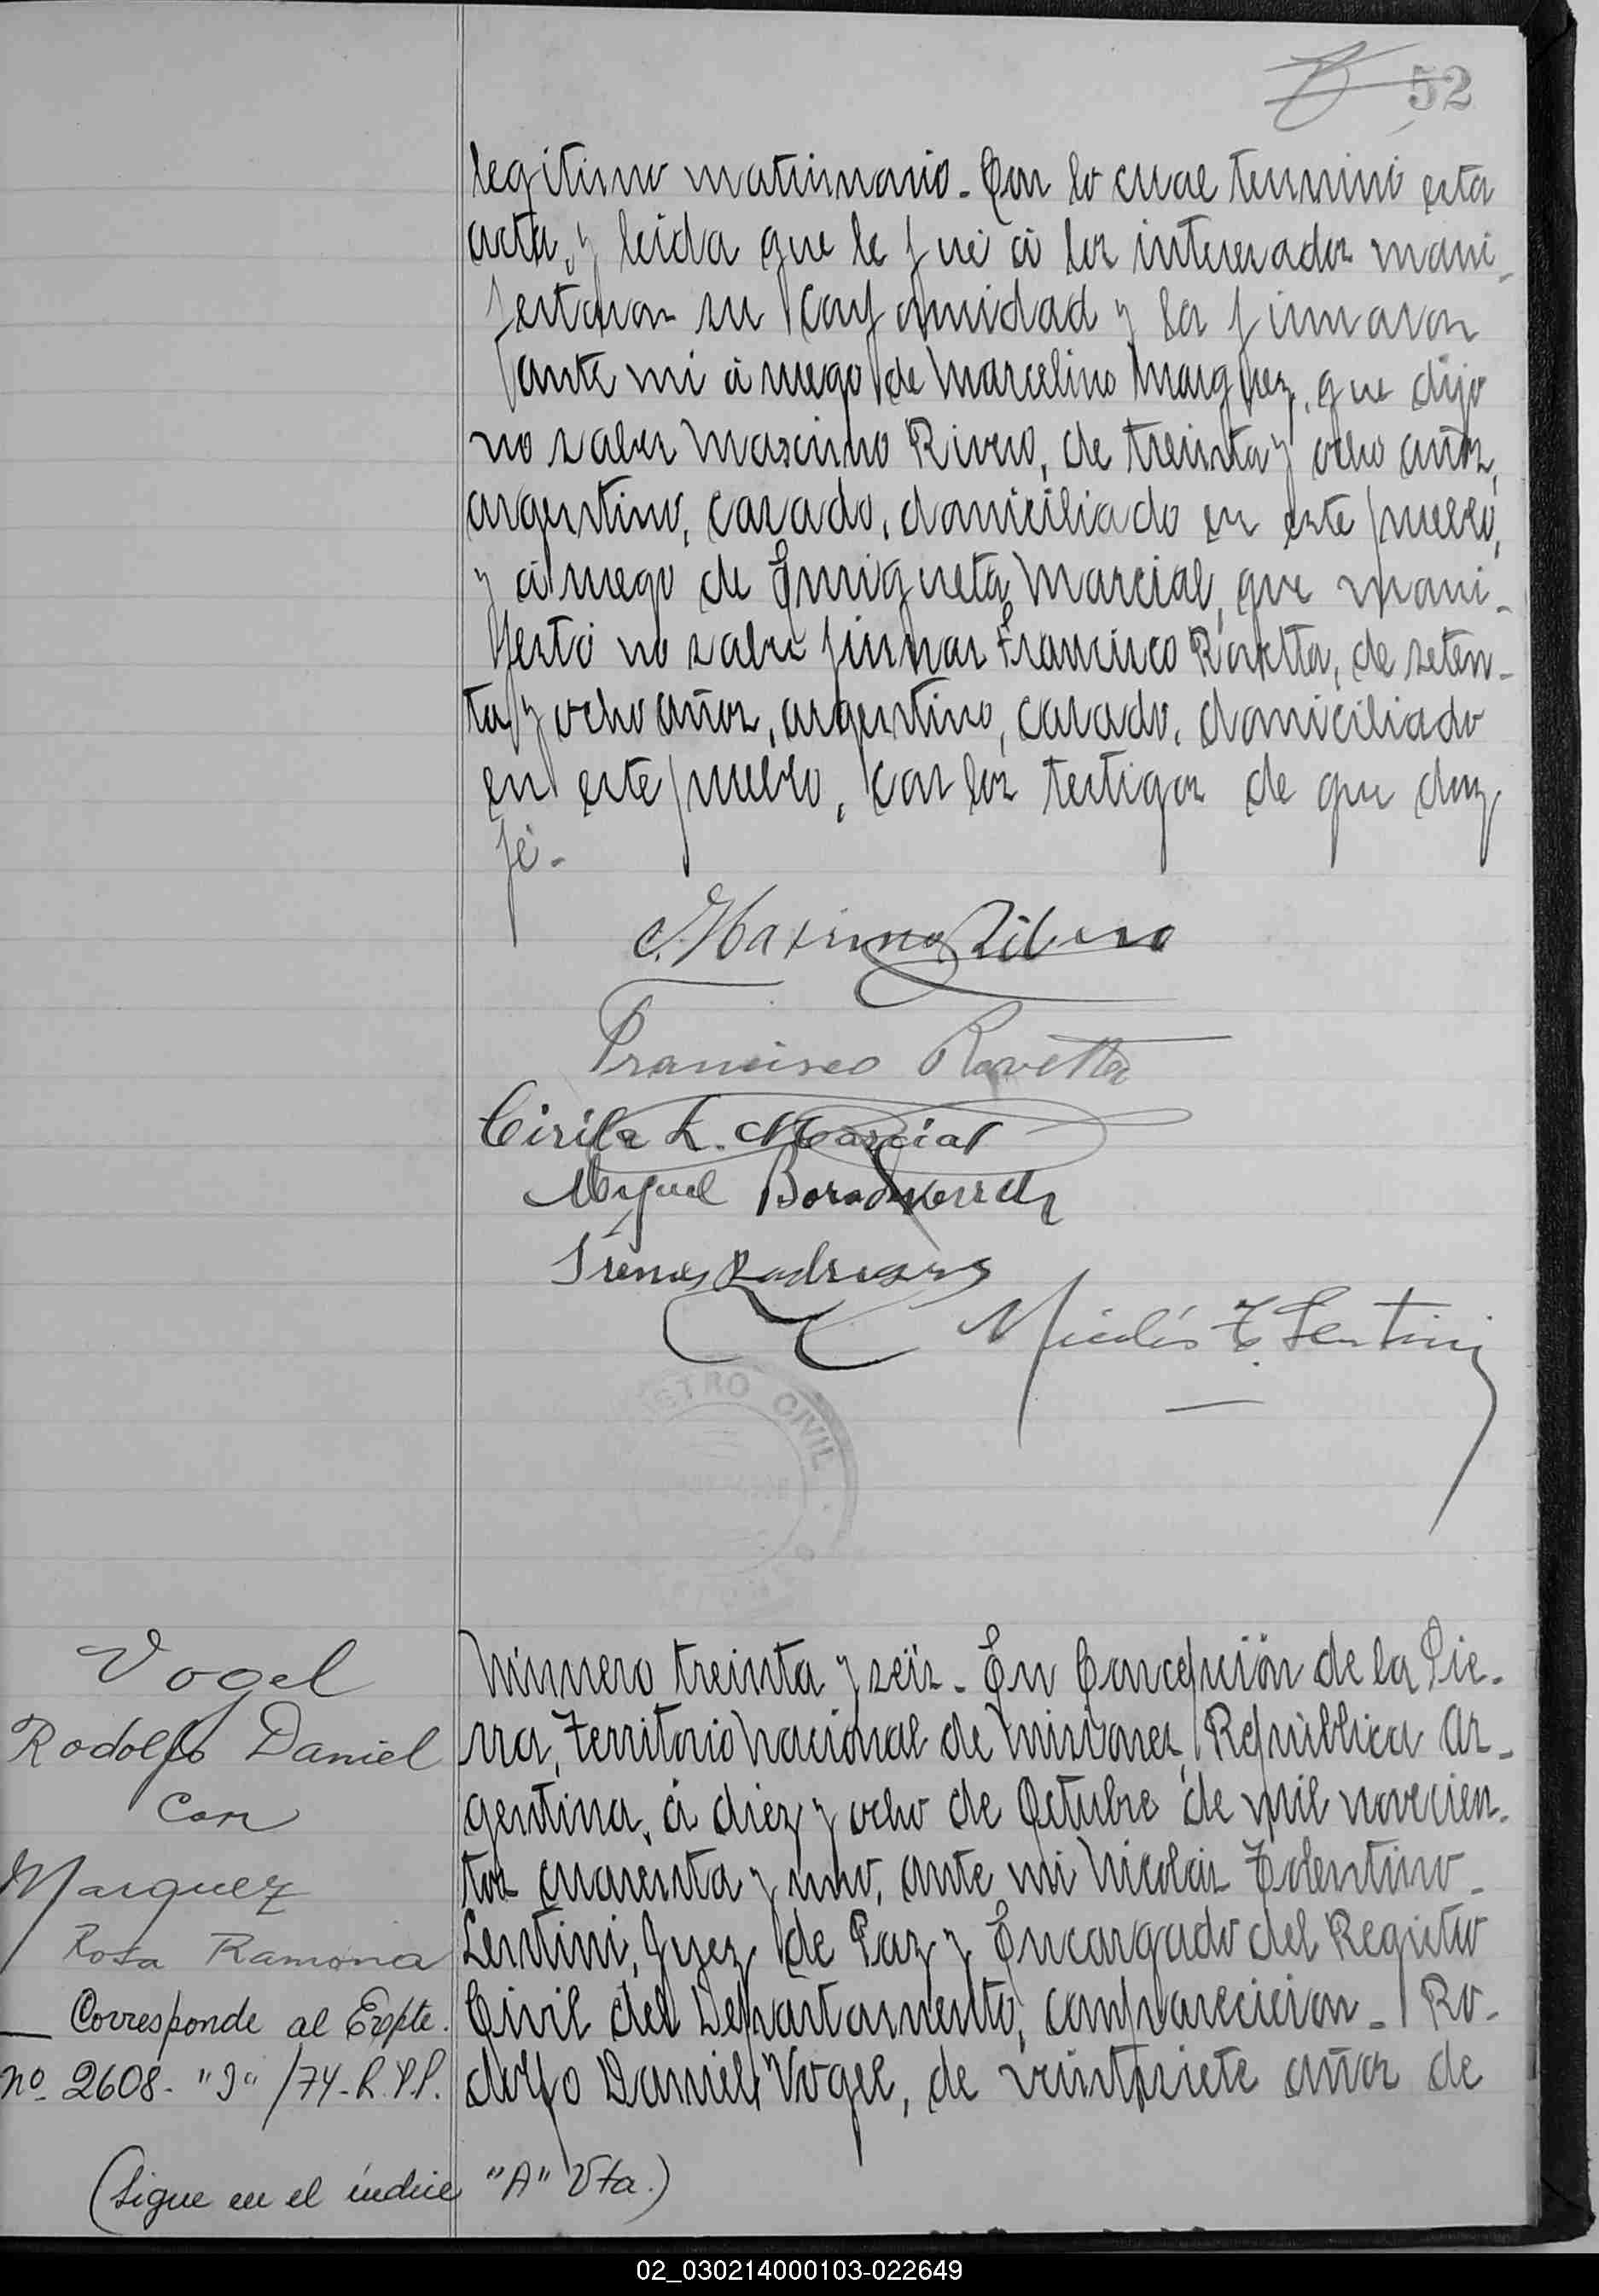 52
legitimo matrimonio. Con lo cual terminó esta
acta, y leida que le fué á los interesados mani-
festaron su conformidad y la firmaron
ante mi á ruego de Marcelino Marquez, que dijo
no saber Maximo Rivero, de treinta y ocho años,
argentino, casado, domiciliado en este pueblo,
y á ruego de Enriqueta Marcial, que mani-
festó no saber firmar Francisco Rovetta, de seten-
ta y ocho años, argentino, casado, domiciliado
en este pueblo, con los testigos de que doy
fé-
Maximo Ribero
Francisco Rovetta
Cirila L. Marcial
Miguel
Irenes Rodriguez
Nicolás T. Lentini
REGISTRO CIVIL
Vogel
Rodolfo Daniel
con
Marquez
Rosa Ramona
Corresponde al Expte.
no. 2608- "J" /74-R.P.P.
Número treinta y seis. En Concepción de la Sie-
rra, Territorio Nacional de Misiones, República Ar-
gentina, á diez y ocho de Octubre de mil novecien-
tos cuarenta y uno, ante mi Nicolás Tolentino
Lentini, Juez de Paz y Encargado del Registro
Civil del Departamento, comparecieron - Ro-
dolfo Daniel Vogel, de veintisiete años de
(Sigue en el índice "A" Vta.)
02_030214000103-022649